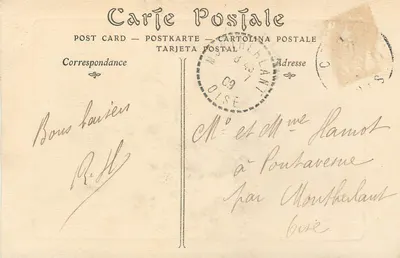 Carte Postale
POST CARD — POSTKARTE — CARTOLINA POSTALE
TARJETA POSTAL
Correspondance
Adresse
OISE
Bons baisers
R. H
Mr et Mme Hamot
à
par Montherlant
Oise